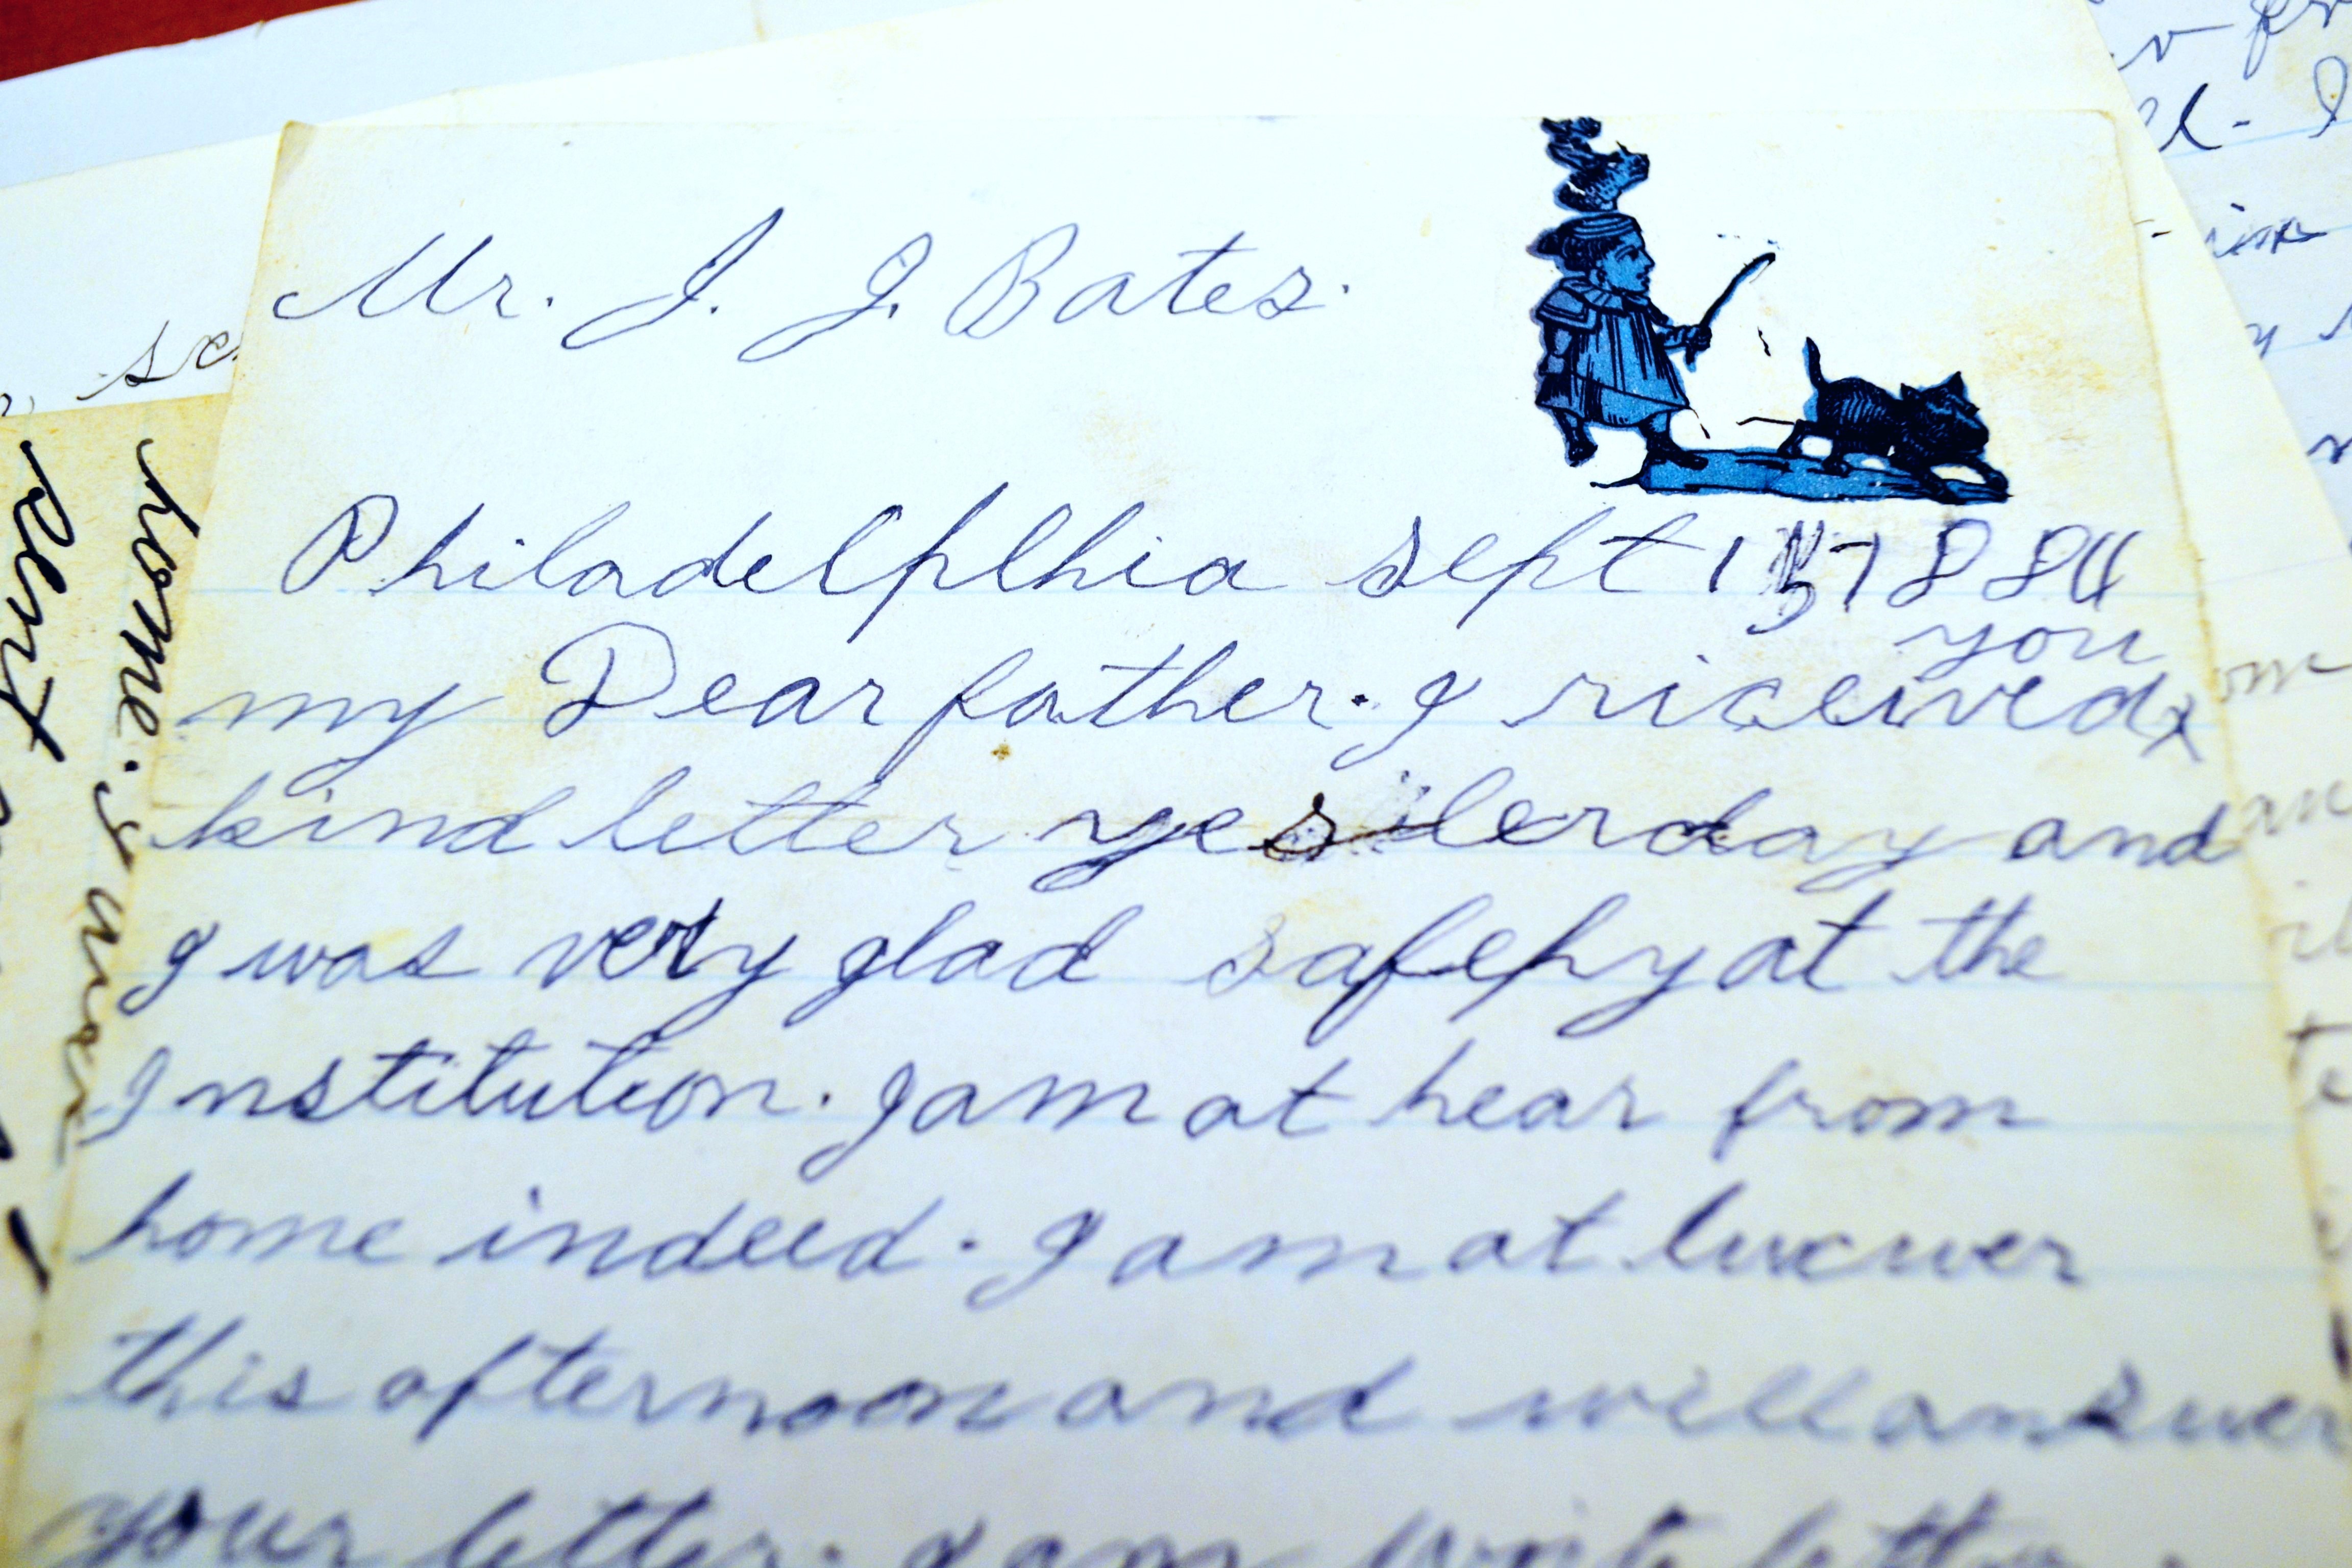 Mr. J. J. Bates.
Philadelplhia sept 15 1884
you
my Dear father. I riceived x
kind letter yesterday and
I was very glad safely at the
Institution. I am at hear from
home indeed. I am at
this afternoon and will answer
your letter. I am write letter
home.